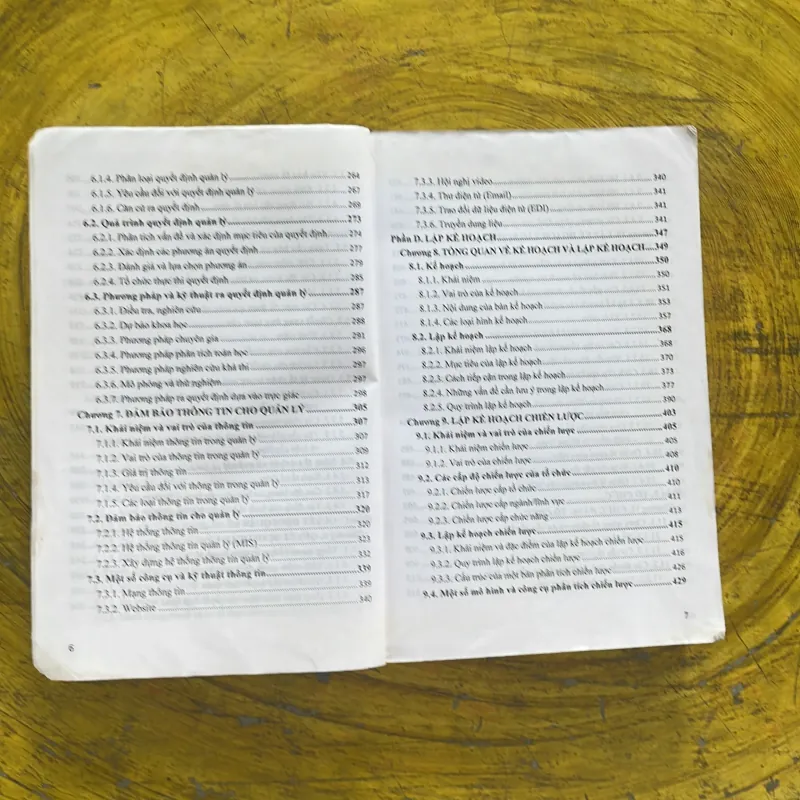 6.1.4. Phân loại quyết định quản lý 264
6.1.5. Yêu cầu đối với quyết định quản lý 267
6.1.6. Căn cứ ra quyết định 269
6.2. Quá trình quyết định quản lý 273
6.2.1. Phân tích vấn đề và xác định mục tiêu của quyết định 274
6.2.2. Xác định các phương án quyết định 277
6.2.3. Đánh giá và lựa chọn phương án 279
6.2.4. Tổ chức thực thi quyết định 285
6.3. Phương pháp và kỹ thuật ra quyết định quản lý 287
6.3.1. Điều tra, nghiên cứu 287
6.3.2. Dự báo khoa học 288
6.3.3. Phương pháp chuyên gia 291
6.3.4. Phương pháp phân tích toán học 296
6.3.5. Phương pháp nghiên cứu khả thi 297
6.3.6. Mô phỏng và thử nghiệm 297
6.3.7. Phương pháp ra quyết định dựa vào trực giác 298
Chương 7. ĐẢM BẢO THÔNG TIN CHO QUẢN LÝ 305
7.1. Khái niệm và vai trò của thông tin 307
7.1.1. Khái niệm thông tin trong quản lý 307
7.1.2. Vai trò của thông tin trong quản lý 309
7.1.3. Giá trị thông tin 312
7.1.4. Yêu cầu đối với thông tin trong quản lý 313
7.1.5. Các loại thông tin trong quản lý 317
7.2. Đảm bảo thông tin cho quản lý 320
7.2.1. Hệ thống thông tin 320
7.2.2. Hệ thống thông tin quản lý (MIS) 323
7.2.3. Xây dựng hệ thống thông tin quản lý 332
7.3. Một số công cụ và kỹ thuật thông tin 339
7.3.1. Mạng thông tin 339
7.3.2. Website 340
6
7.3.3. Hội nghị video 340
7.3.4. Thư điện tử (Email) 341
7.3.5. Trao đổi dữ liệu điện tử (EDI) 341
7.3.6. Truyền dữ liệu 341
Phần D. LẬP KẾ HOẠCH 347
Chương 8. TỔNG QUAN VỀ KẾ HOẠCH VÀ LẬP KẾ HOẠCH 349
8.1. Kế hoạch 350
8.1.1. Khái niệm 350
8.1.2. Vai trò của kế hoạch 351
8.1.3. Nội dung của bản kế hoạch 353
8.1.4. Các loại hình kế hoạch 357
8.2. Lập kế hoạch 368
8.2.1. Khái niệm lập kế hoạch 368
8.2.2. Mục tiêu của lập kế hoạch 370
8.2.3. Cách tiếp cận trong lập kế hoạch 373
8.2.4. Những vấn đề cần lưu ý trong lập kế hoạch 377
8.2.5. Quy trình lập kế hoạch 390
Chương 9. LẬP KẾ HOẠCH CHIẾN LƯỢC 403
9.1. Khái niệm và vai trò của chiến lược 405
9.1.1. Khái niệm chiến lược 405
9.1.2. Vai trò của chiến lược 408
9.2. Các cấp độ chiến lược của tổ chức 410
9.2.1. Chiến lược cấp tổ chức 410
9.2.2. Chiến lược cấp ngành/lĩnh vực 411
9.2.3. Chiến lược cấp chức năng 413
9.3. Lập kế hoạch chiến lược 415
9.3.1. Khái niệm và đặc điểm của lập kế hoạch chiến lược 415
9.3.2. Quy trình lập kế hoạch chiến lược 416
9.3.3. Cấu trúc của một bản phân tích chiến lược 426
9.4. Một số mô hình và công cụ phân tích chiến lược 429
7